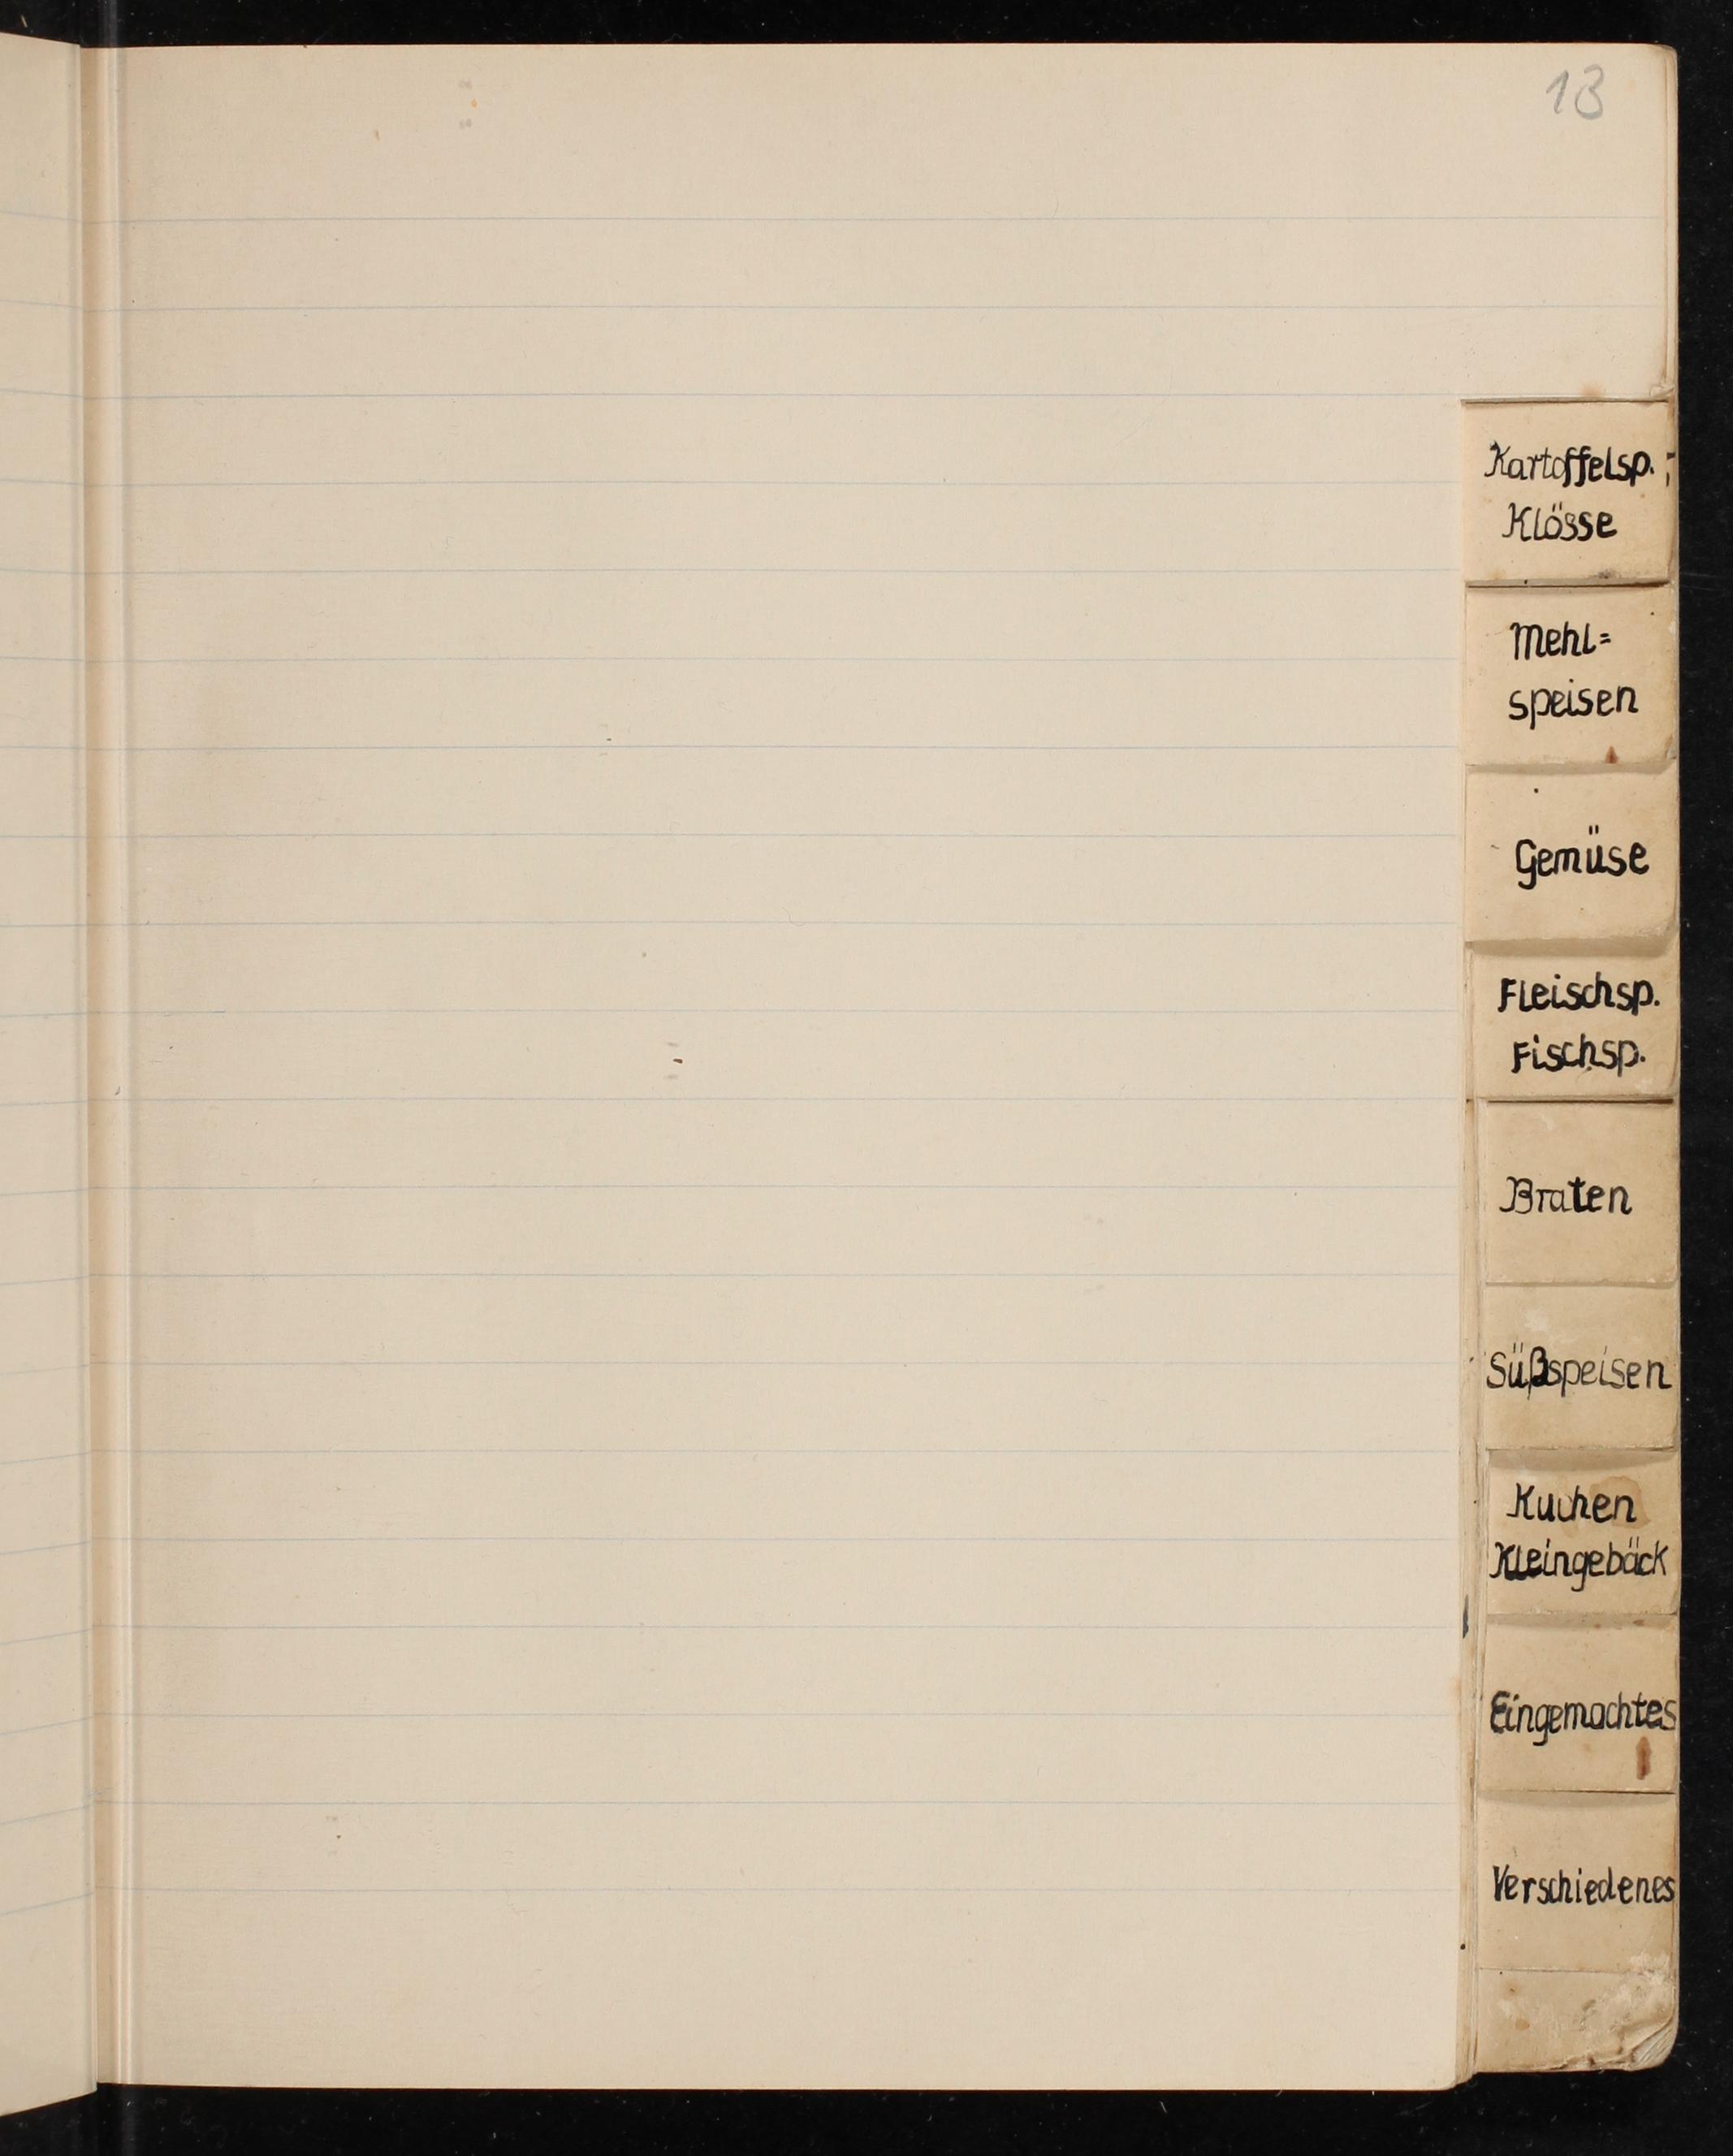 13
Kartoffelsp.
Klösse
Mehl=
speisen
Gemüse
Fleischsp.
Fischsp.
Braten
Süßspeisen
Kuchen
Kleingebäck
Eingemachtes
Verschiedenes